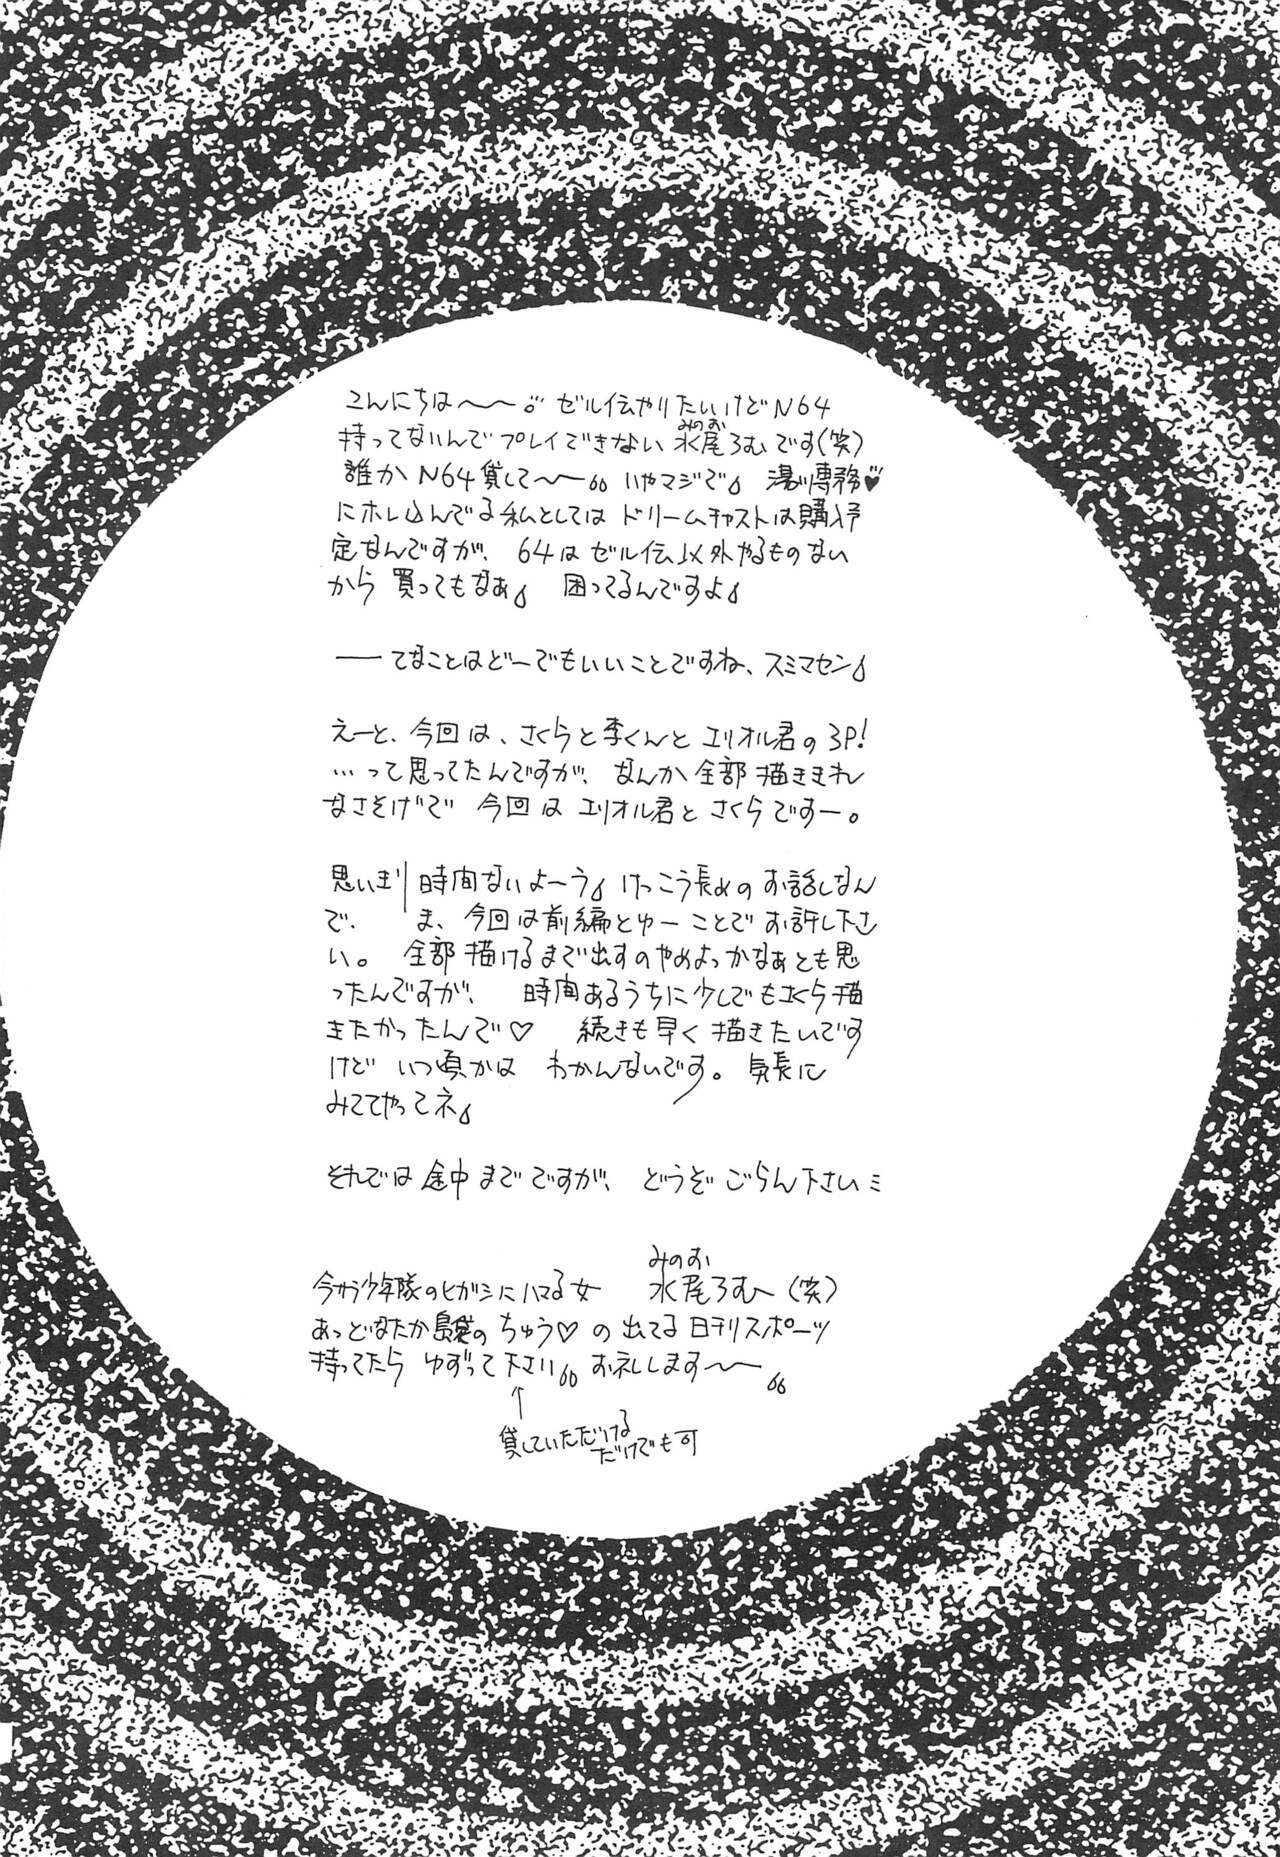 こんにちは〜〜。ゼル伝やりたいけどN64
みのお
持ってないんでプレイできない 水尾ろむです(笑)
誰か N64貸して〜〜 いやマジで 湯川専務♥
にホレ込んでる私としては ドリームキャストは購入予
定なんですが、 64は ゼル伝以外やるものない
から 買ってもなぁ 困ってるんですよ
――てなことはどーでもいいことですね、スミマセン
えーと、今回は、さくらと李くんとエリオル君の3P!
…って思ってたんですが、なんか全部描ききれ
なさそげで 今回は エリオル君と さくらですー。
思いきり時間ないよーう けっこう長めのお話しなん
で、 ま、今回は前編とゆーことでお許し下さ
い。 全部描けるまで出すのやめよっかなぁとも思
ったんですが、 時間あるうちに少しでもさくら描
きたかったんで♡ 続きも早く描きたいです
けど いつ頃かは わかんないです。気長に
みててやってネ
それでは途中までですが、 どうぞ ごらん下さいミ
みのお
今さら少年隊のヒガシにハマる女 水尾ろむ(笑)
あっどなたか島袋の ちゅう♡の出てる日刊スポーツ
持ってたら ゆずって下さい お礼します〜〜
↑
貸していただける
だけでも可